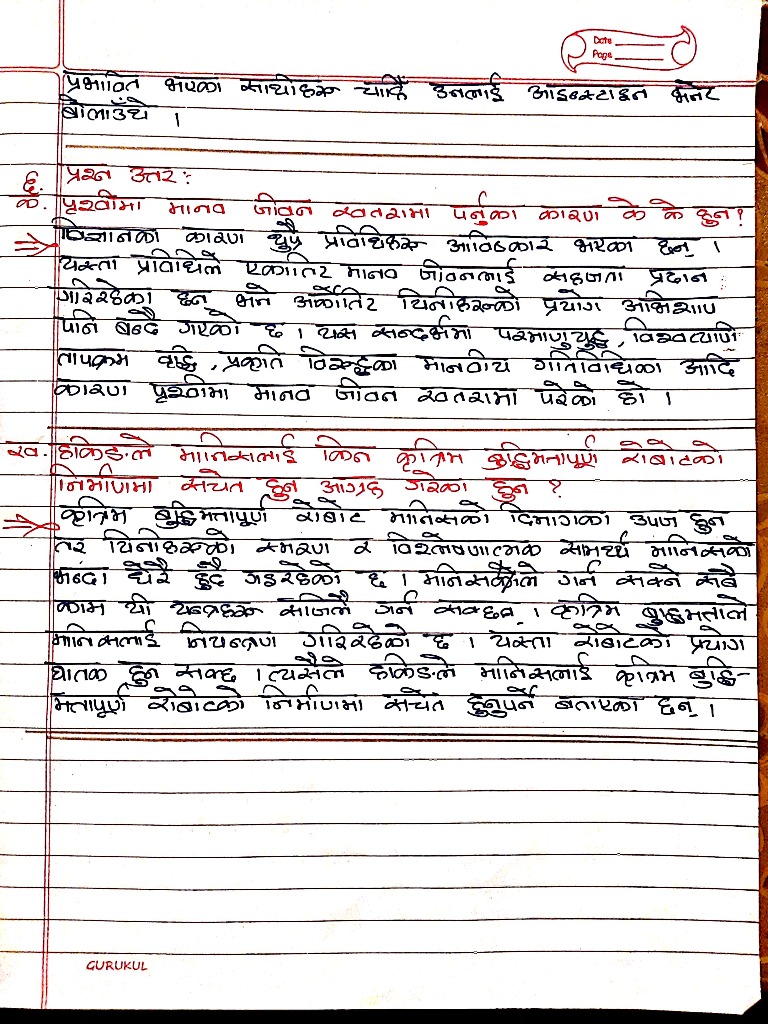 Date
Page
प्रभावित भएका साथीहरू चाहिँ उनलाई आइन्स्टाइन भनेर
बोलाउँथे ।
६. प्रश्न उत्तर :
क. पृथ्वीमा मानव जीवन खतरामा पर्नुका कारण के के हुन ?
विज्ञानका कारण थुप्रै प्रविधिहरू आविष्कार भएका छन् ।
यस्ता प्रविधिले एकातिर मानव जीवनलाई सहजता प्रदान
गरिरहेका छन् भने अर्कोतिर यिनीहरूको प्रयोग अभिशाप
पनि बन्दै गएको छ । यस सन्दर्भमा परमाणु युद्ध , विश्वव्यापी
तापक्रम वृद्धि , प्रकृति विरुद्धका मानवीय गतिविधिका आदि
कारण पृथ्वीमा मानव जीवन खतरामा परेको हो ।
ख. हकिङले मानिसलाई किन कृत्रिम बुद्धिमतापूर्ण रोबोटको
निर्माणमा सचेत हुन आग्रह गरेका हुन ?
कृत्रिम बुद्धिमतापूर्ण रोबोट मानिसको दिमागका उपज हुन
तर यिनीहरूको स्मरण र विश्लेषणात्मक सामर्थ्य मानिसको
भन्दा धेरै हुँदै गइरहेको छ । मानिसले गर्न सक्ने सबै
काम यी यन्त्रहरू सजिलै गर्न सक्छन् । कृत्रिम बुद्धिमताले
मानिसलाई नियन्त्रण गरिरहेको छ । यस्ता रोबोटको प्रयोग
घातक हुन सक्छ । त्यसैले हकिङले मानिसलाई कृत्रिम बुद्धि-
मतापूर्ण रोबोटको निर्माणमा सचेत हुनुपर्ने बताएका छन् ।
GURUKUL